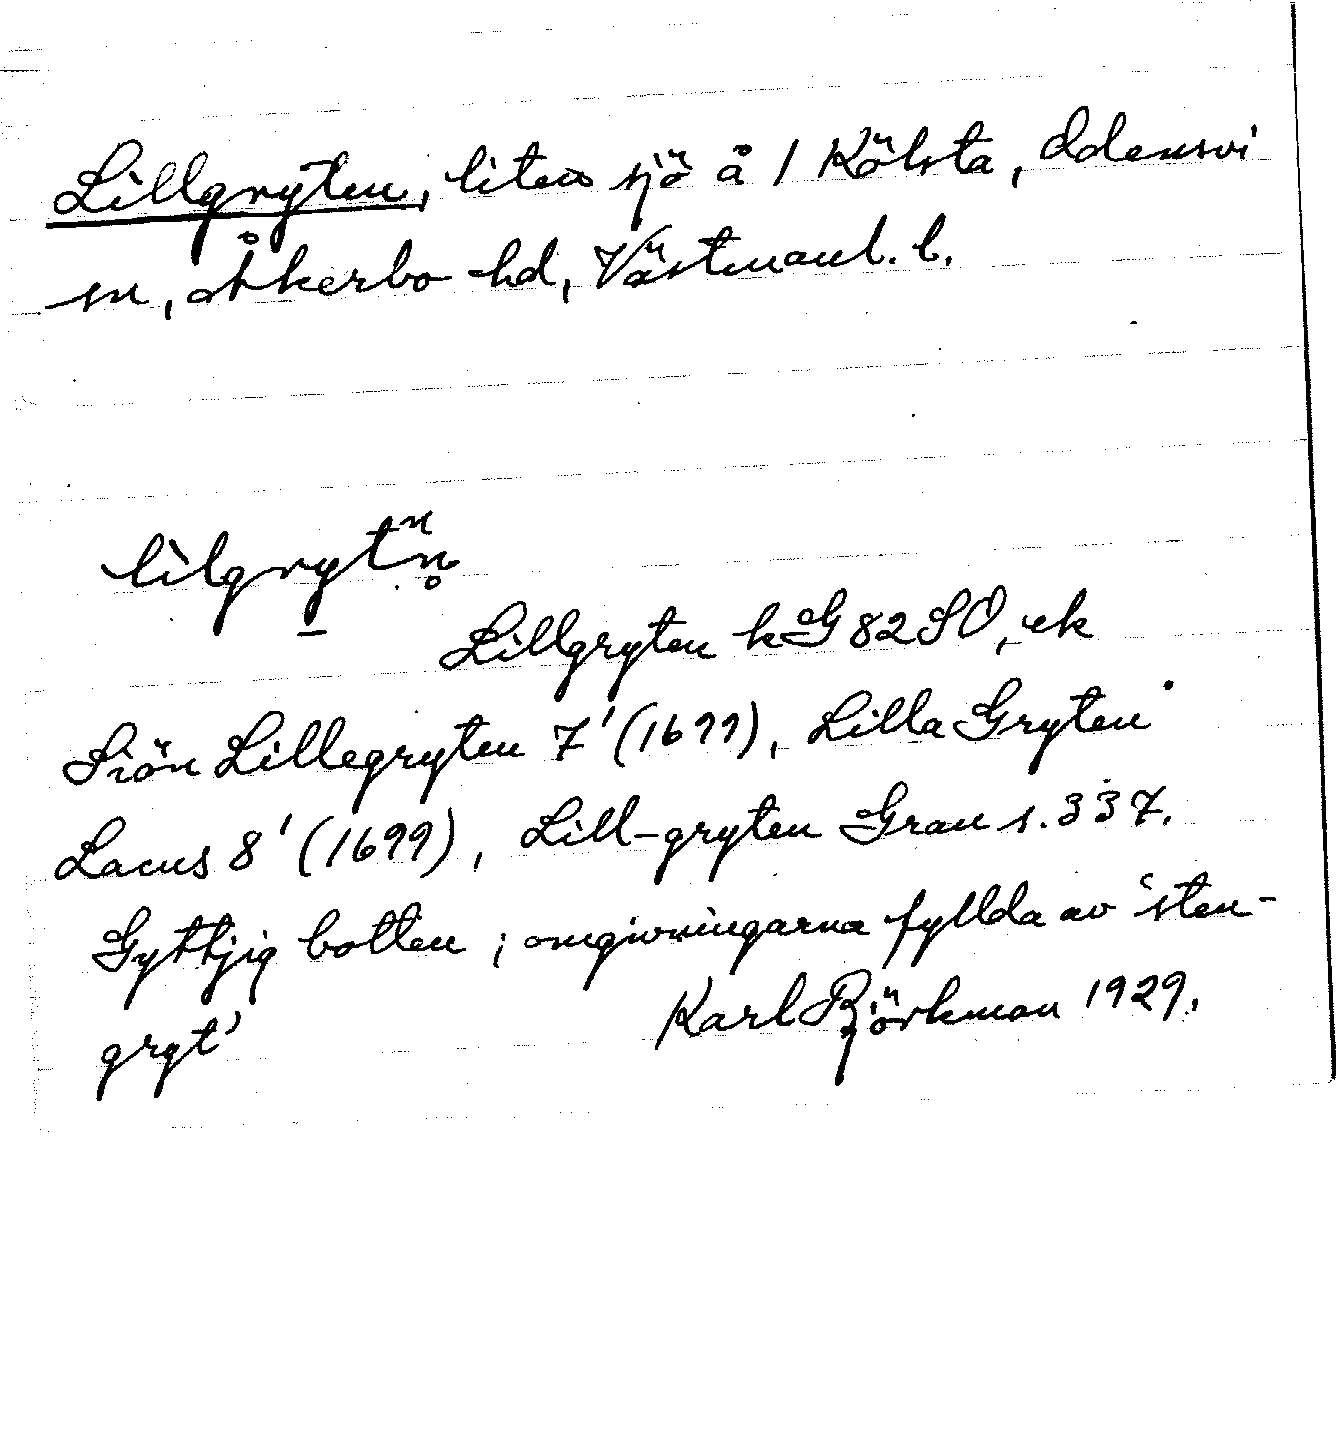 Lillgryten, liten sjö å 1 Kölsta, Odensvi
sn, Åkerbo hd, Västmanl. l.
lilgrytn̥
Lillgryten kG 82 SO, ek
Siön Lillegryten 7' (1699), Lilla Gryten
Lacus 8' (1699), Lill-gryten Grau s. 337.
Gyttjig botten; omgivningarna fyllda av 'sten-
gryt'
Karl Björkman 1929.